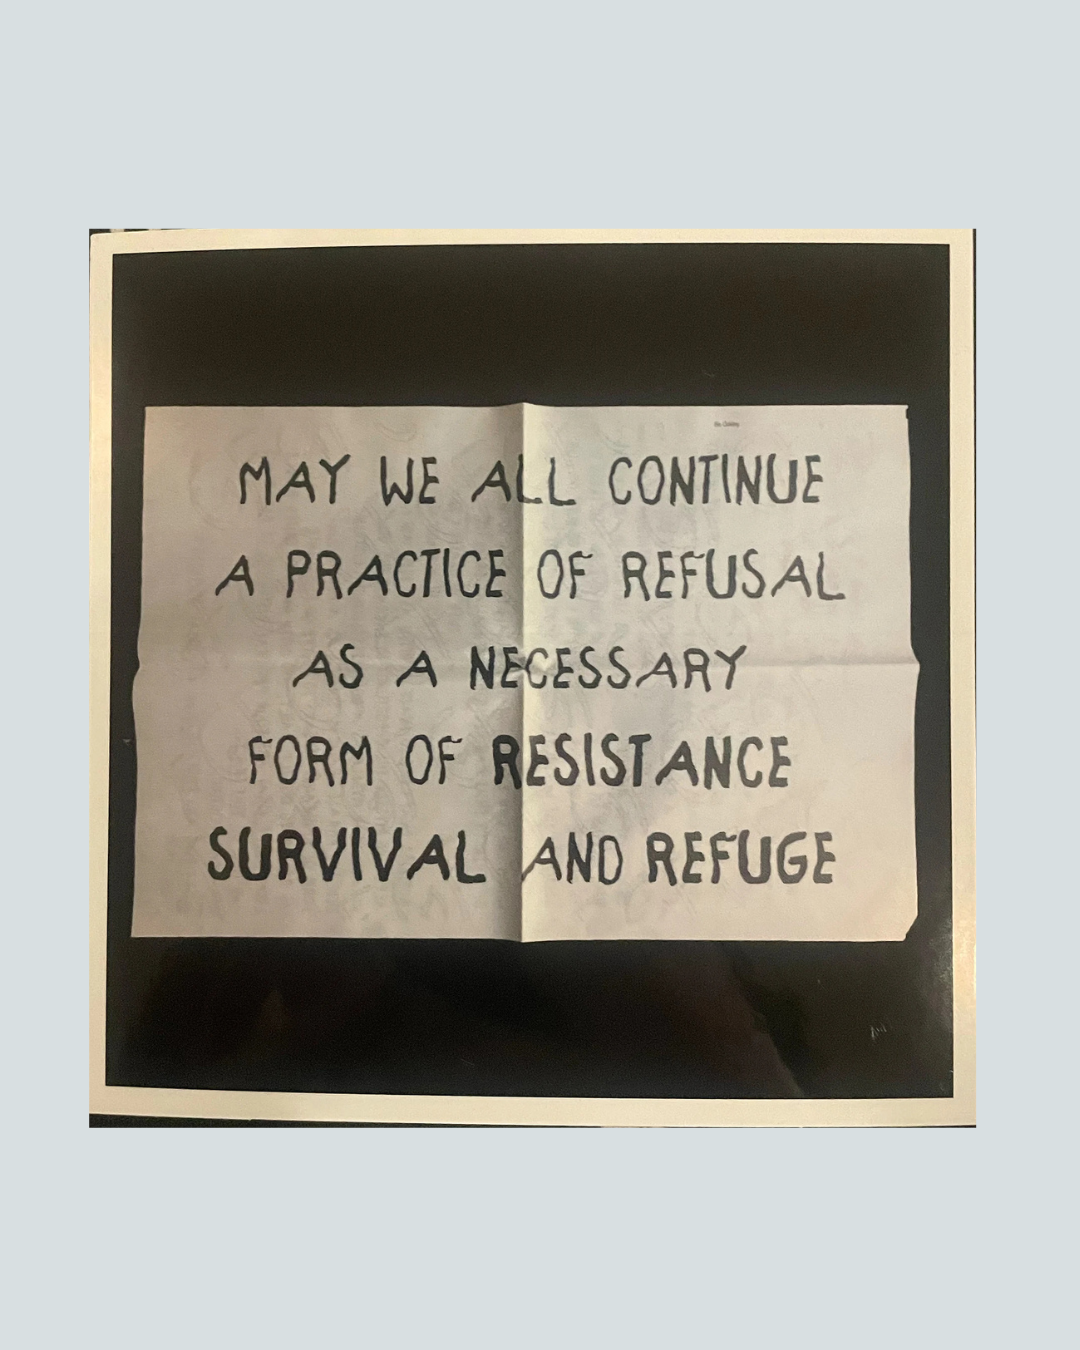 MAY WE ALL CONTINUE
A PRACTICE OF REFUSAL
AS A NECESSARY
FORM OF RESISTANCE
SURVIVAL AND REFUGE